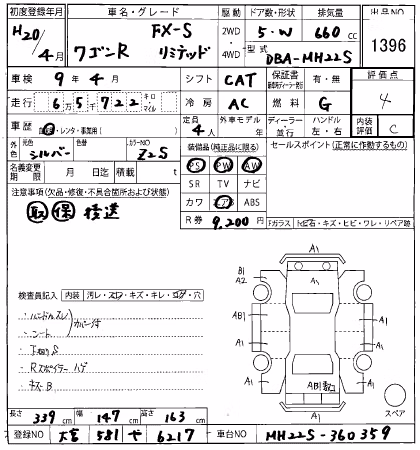 初度登録年月 車名・グレード 駆動 ドア数・形状 排気量 出品NO
H20/4月 ワゴンR FX-S リミテッド 2WD・4WD 5・W 660cc 1396
型式 DBA-MH22S
車検 9年4月 シフト CAT 保証書 有・無 評価点
走行 6万5千722 キロ・マイル 冷房 AC 燃料 G 4
車歴 自家・レンタ・事業用( ) 定員 4人 外車モデル 年 ディーラー・並行 ハンドル 左・右 内装評価 C
外色 元色 シルバー カラーNO Z2S 装備品(純正品に限る) セールスポイント(正常に作動するもの)
名義変更期限 月 日迄 積載 t PS PW AW
注意事項(欠品・修復・不具合箇所および状態) SR TV ナビ
取 保 後送 カワ エアB ABS
R券 9,200円 Fガラス トビ石・キズ・ヒビ・ワレ・リペア跡
A1
B1
A2
A1
AB1
A1
A1
A1
A1
AB1
A1
検査員記入 内装 汚レ・スレ・キズ・キレ・コゲ・穴
・ハンドルスレ
・シート
カバー付
・下廻りS
・Rスポイラー ハゲ
・キズB
スペア
長さ 339cm 幅 147cm 高さ 163cm
登録NO 大宮 581 や 6217 車台NO MH22S-360359